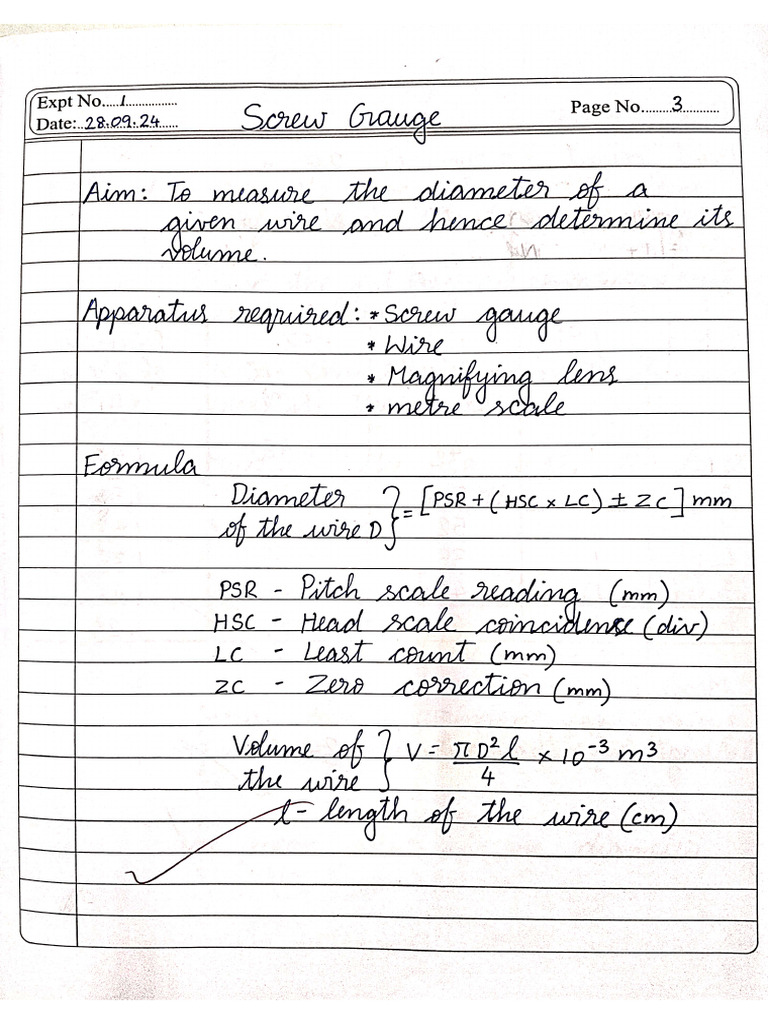 Expt No.....1................
Screw Gauge
Page No........3..........
Date:..28.09.24.....
Aim: To measure the diameter of a
given wire and hence determine its
volume.
Apparatus required: * Screw gauge
* Wire
* Magnifying lens
* metre scale
Formula
Diameter
of the wire D } = [PSR + (HSC × LC) ± ZC] mm
PSR - Pitch scale reading (mm)
HSC - Head scale coincidense (div)
LC - Least count (mm)
ZC - Zero correction (mm)
Volume of
the wire } V = πD²l/4 × 10⁻³ m³
l - length of the wire (cm)